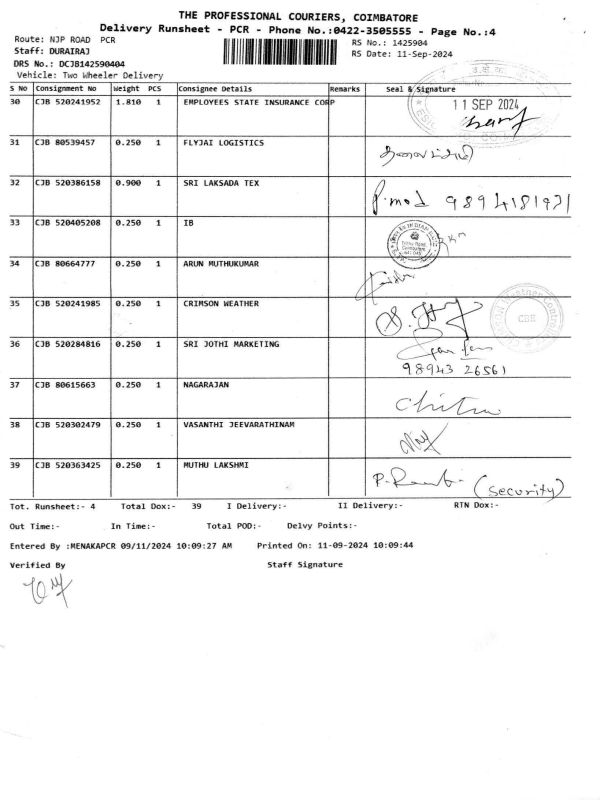 THE PROFESSIONAL COURIERS, COIMBATORE
Delivery Runsheet - PCR - Phone No.:0422-3505555 - Page No.:4
Route: NJP ROAD PCR
RS No.: 1425904
Staff: DURAIRAJ
RS Date: 11-Sep-2024
DRS No.: DCJB142590404
Vehicle: Two Wheeler Delivery
S No Consignment No Weight PCS Consignee Details Remarks Seal & Signature
30 CJB 520241952 1.810 1 EMPLOYEES STATE INSURANCE CORP
11 SEP 2024
31 CJB 80539457 0.250 1 FLYJAI LOGISTICS
32 CJB 520386158 0.900 1 SRI LAKSADA TEX
P.mod 9894181971
33 CJB 520405208 0.250 1 IB
34 CJB 80664777 0.250 1 ARUN MUTHUKUMAR
35 CJB 520241985 0.250 1 CRIMSON WEATHER
CBE
36 CJB 520284816 0.250 1 SRI JOTHI MARKETING
98943 26561
37 CJB 80615663 0.250 1 NAGARAJAN
Chitra
38 CJB 520302479 0.250 1 VASANTHI JEEVARATHINAM
39 CJB 520363425 0.250 1 MUTHU LAKSHMI
(security)
Tot. Runsheet:- 4 Total Dox:- 39 I Delivery:- II Delivery:- RTN Dox:-
Out Time:- In Time:- Total POD:- Delvy Points:-
Entered By :MENAKAPCR 09/11/2024 10:09:27 AM Printed On: 11-09-2024 10:09:44
Verified By Staff Signature